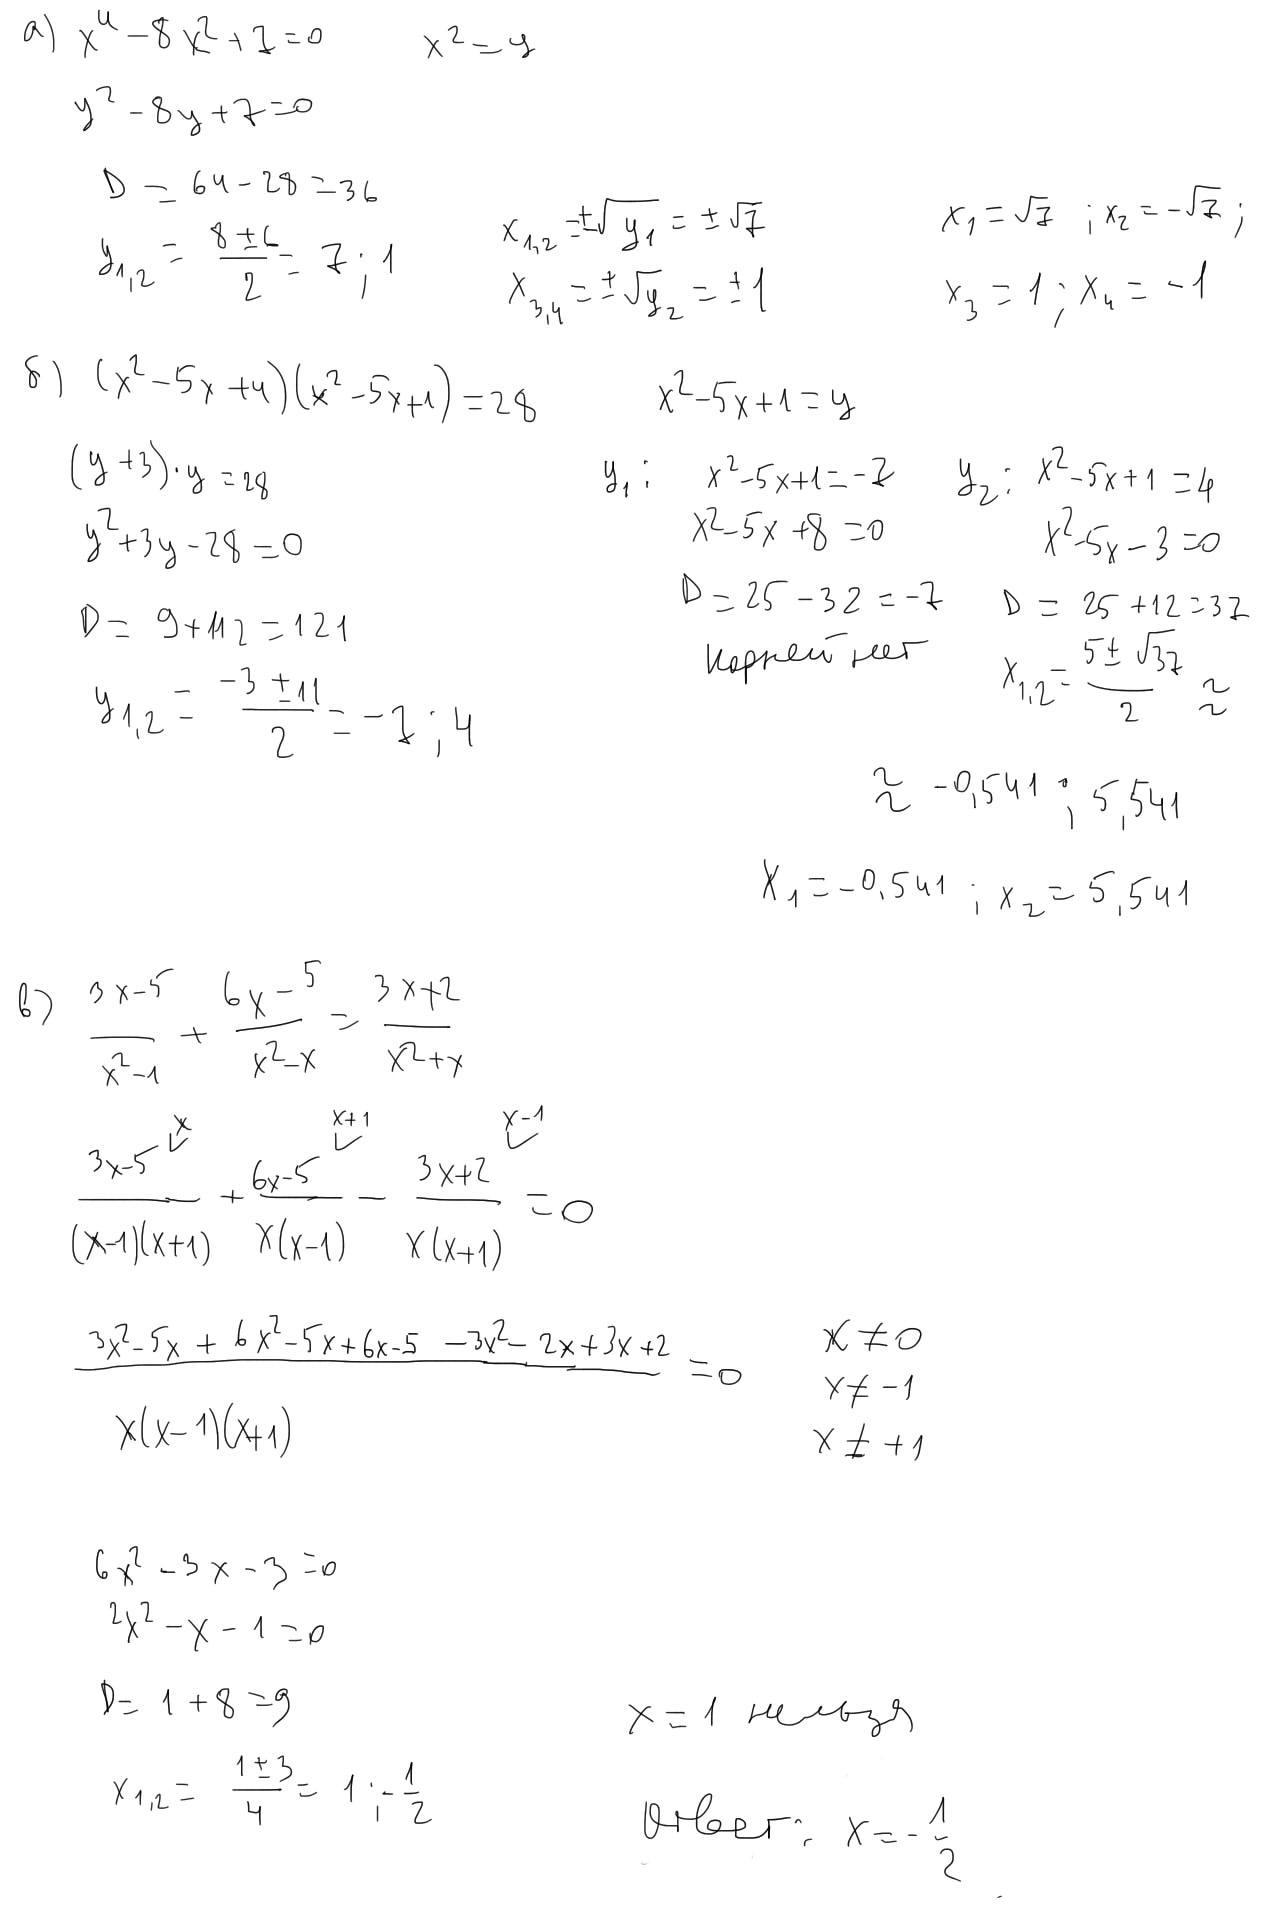 а) x⁴ - 8x² + 7 = 0   x² = y
y² - 8y + 7 = 0
D = 64 - 28 = 36
y₁,₂ = (8 ± 6)/2 = 7 ; 1
x₁,₂ = ±√y₁ = ±√7
x₃,₄ = ±√y₂ = ±1
x₁ = √7 ; x₂ = -√7 ;
x₃ = 1 ; x₄ = -1
б) (x² - 5x + 4)(x² - 5x + 1) = 28   x² - 5x + 1 = y
(y + 3) · y = 28
y² + 3y - 28 = 0
D = 9 + 112 = 121
y₁,₂ = (-3 ± 11)/2 = -7 ; 4
y₁ : x² - 5x + 1 = -7
x² - 5x + 8 = 0
D = 25 - 32 = -7
корней нет
y₂ : x² - 5x + 1 = 4
x² - 5x - 3 = 0
D = 25 + 12 = 37
x₁,₂ = (5 ± √37)/2 ≈
≈ -0,541 ; 5,541
x₁ = -0,541 ; x₂ = 5,541
в) (3x - 5)/(x² - 1) + (6x - 5)/(x² - x) = (3x + 2)/(x² + x)
x   x+1   x-1
(3x - 5)/((x - 1)(x + 1)) + (6x - 5)/(x(x - 1)) - (3x + 2)/(x(x + 1)) = 0
(3x² - 5x + 6x² - 5x + 6x - 5 - 3x² - 2x + 3x + 2)/(x(x - 1)(x + 1)) = 0
x ≠ 0
x ≠ -1
x ≠ +1
6x² - 3x - 3 = 0
2x² - x - 1 = 0
D = 1 + 8 = 9
x₁,₂ = (1 ± 3)/4 = 1 ; -1/2
x = 1 нельзя
Ответ: x = -1/2